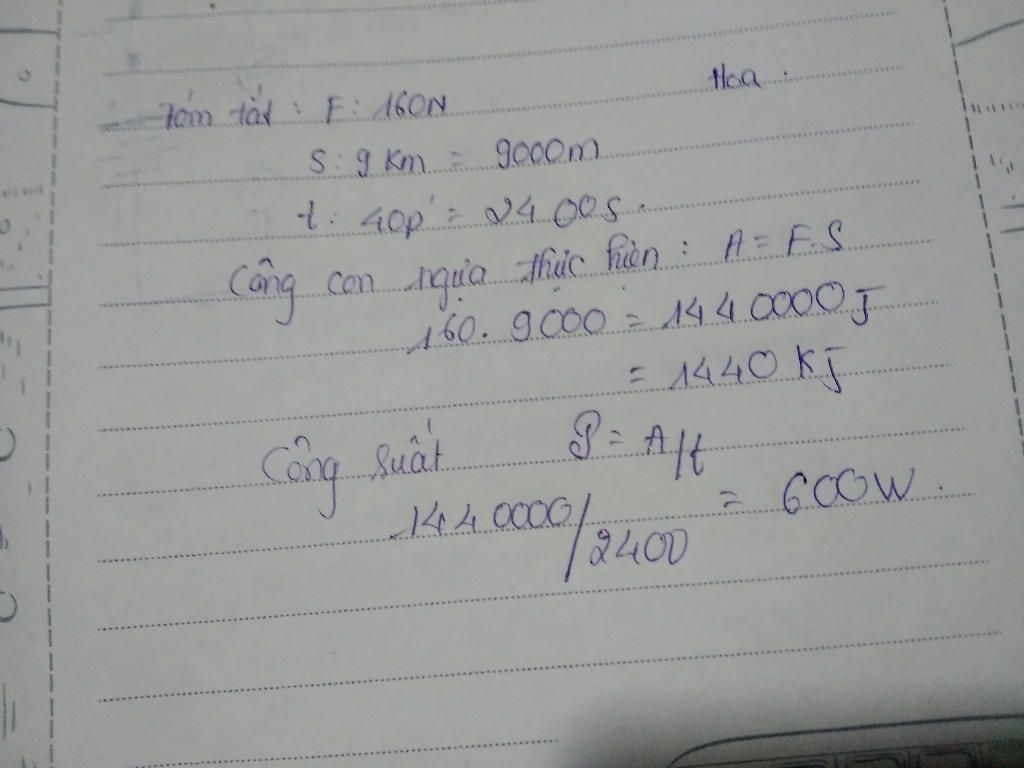 Hoa.
Tóm tắt: F: 160N
S: 9 Km = 9000m
t: 40p' = 2400s.
Công con ngựa thực hiện: A = F.S
160. 9000 = 1440000J
= 1440 KJ
Công suất P = A/t
1440000/2400 = 600W.